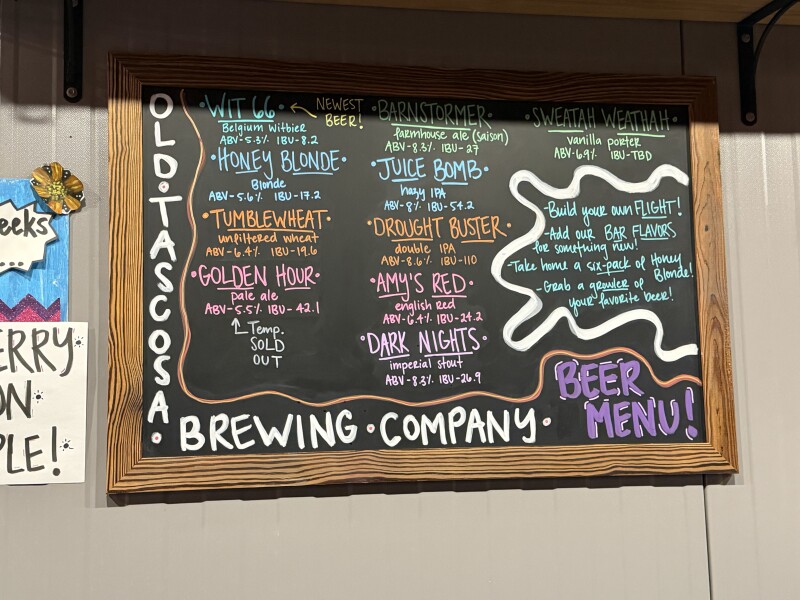 OLD·TASCOSA·
BREWING·COMPANY·
·WIT 66·
NEWEST
BEER!
Belgium Witbier
ABV-5.3% IBU-8.2
·HONEY BLONDE·
Blonde
ABV-5.6% IBU-17.2
·TUMBLEWHEAT·
unfiltered wheat
ABV-6.4% IBU-19.6
·GOLDEN HOUR·
pale ale
ABV-5.5% IBU-42.1
Temp.
SOLD
OUT
·BARNSTORMER·
farmhouse ale (saison)
ABV-8.3% IBU-27
·JUICE BOMB·
hazy IPA
ABV-8% IBU-54.2
·DROUGHT BUSTER·
double IPA
ABV-8.6% IBU-110
·AMY'S RED·
english red
ABV-6.4% IBU-24.2
·DARK NIGHTS·
imperial stout
ABV-8.3% IBU-26.9
·SWEATAH WEATHAH·
vanilla porter
ABV-6.9% IBU-TBD
-Build your own FLIGHT!
-Add our BAR FLAVORS
for something new!
-Take home a six-pack of Honey
Blonde!
-Grab a growler of
your favorite beer!
BEER
MENU!
eeks
...
ERRY
ON
PLE!